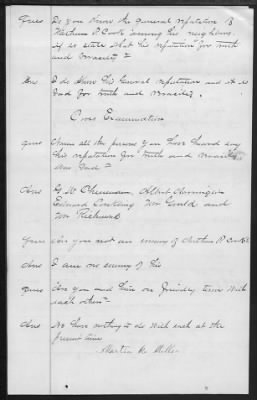 Ques Do you know the general reputation of
P. Cook among his neighbors.
If so state what his reputation for truth
and veracity is
Ans I do know his general reputation and it is
bad for truth and veracity.
Cross Examination
Ques Name all the persons you have heard say
his reputation for truth and veracity
was bad
Ans G. W. Albert
Edward Wm Gould and
Wm
Ques Are you not an enemy of P. Cook
Ans I am no enemy of his
Ques Are you and him on friendly terms with
each other
Ans We have nothing to do with each at the
present time
Martin W. Miller